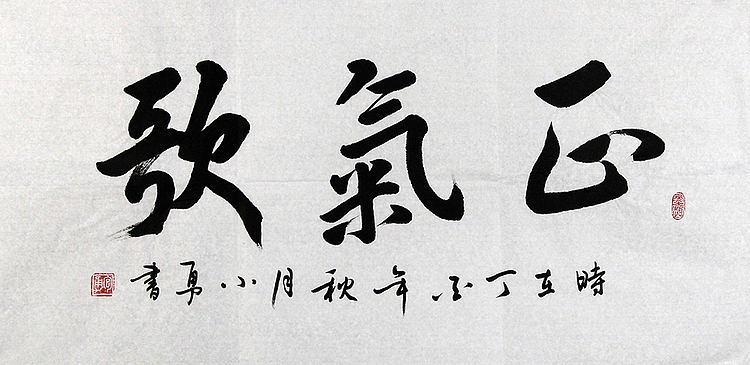 正氣歌
時在丁年秋月小勇書